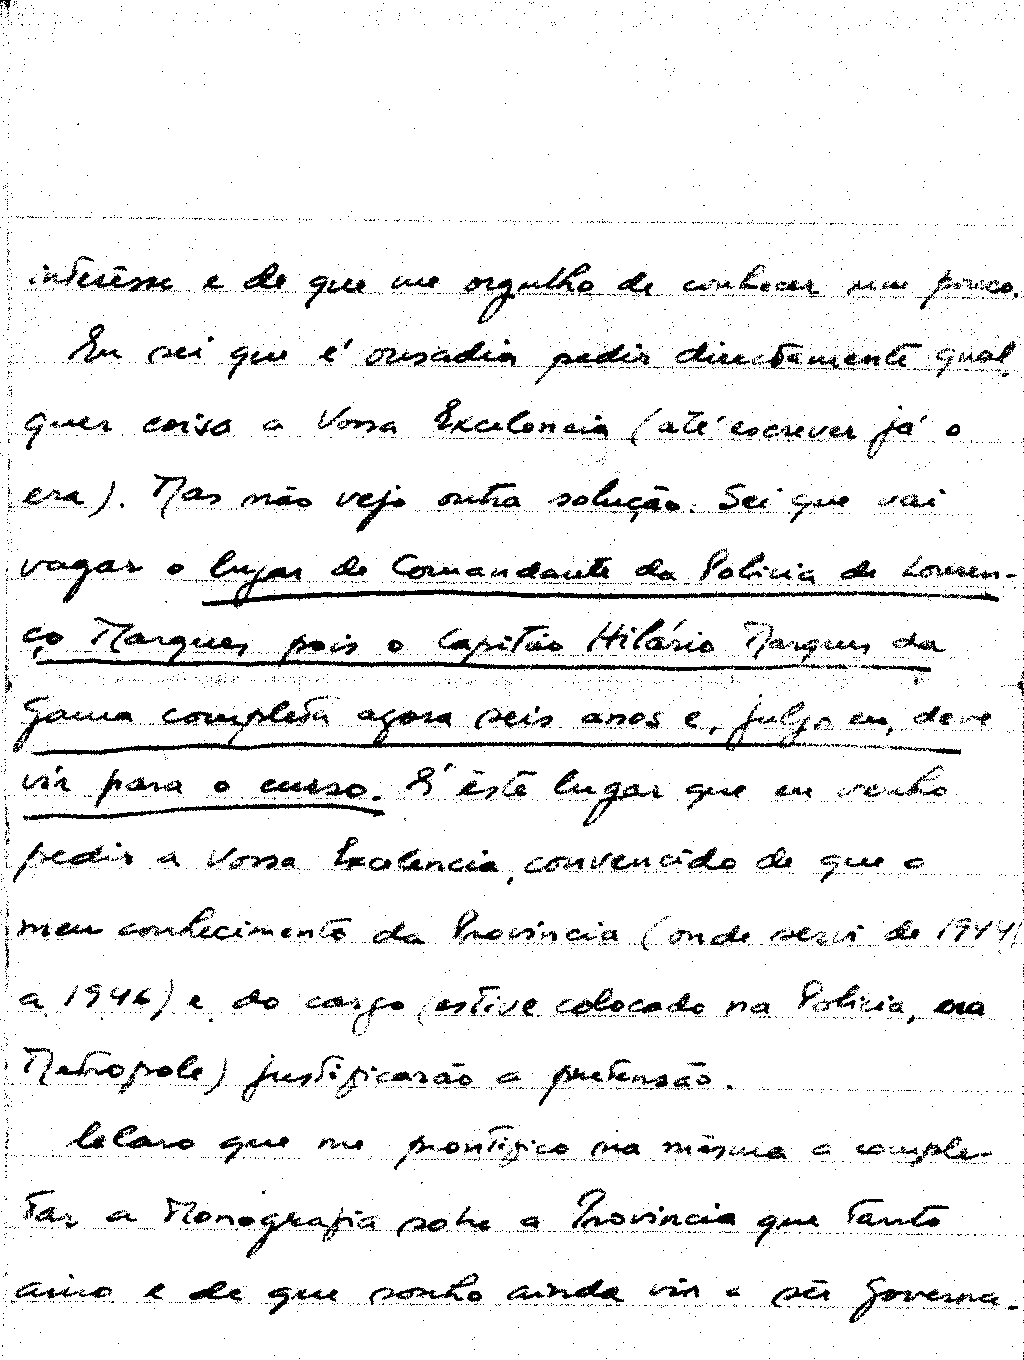 interêsse e de que me orgulho de conhecer um pouco.
Eu sei que é ousadia pedir directamente qual
quer coisa a Vossa Excelencia (até escrever já o
era). Mas não vejo outra solução. Sei que vai
vagar o lugar de Comandante da Policia de Louren-
ço Marques pois o Capitão Hilário Marques da
Gama completa agora seis anos e, julgo eu, deve
vir para o curso. É êste lugar que eu venho
pedir a Vossa Excelencia, convencido de que o
meu conhecimento da Provincia (onde servi de 1944
a 1946) e do cargo (estive colocado na Policia, na
Metropole) justificarão a pretensão.
Claro que me prontifico na mesma a comple-
tar a Monografia sobre a Provincia que tanto
amo e de que sonho ainda vir a ser Governa-